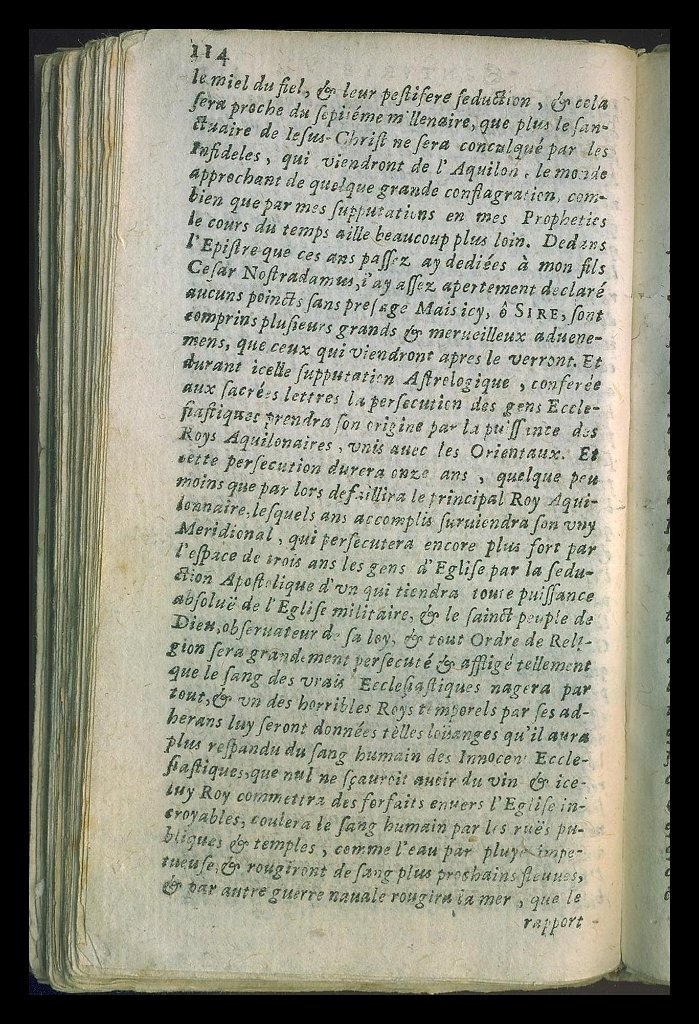 114
le miel du fiel, & leur pestifere seduction, & cela
sera proche du septiéme millenaire, que plus le san-
ctuaire de Iesus-Christ ne sera conculqué par les
Infideles, qui viendront de l'Aquilon, le monde
approchant de quelque grande conflagration, com-
bien que par mes supputations en mes Propheties
le cours du temps aille beaucoup plus loin. Dedans
l'Epistre que ces ans passez ay dediées à mon fils
Cesar Nostradamus, i'ay assez apertement declaré
aucuns poincts sans presage Mais icy, ô SIRE, sont
comprins plusieurs grands & merueilleux aduene-
mens, que ceux qui viendront apres le verront. Et
durant icelle supputation Astrologique, conferée
aux sacrées lettres la persecution des gens Eccle-
siastiques prendra son origine par la puissance des
Roys Aquilonaires, vnis auec les Orientaux. Et
cette persecution durera onze ans, quelque peu
moins que par lors defaillira le principal Roy Aqui-
lonnaire, lesquels ans accomplis suruiendra son vny
Meridional, qui persecutera encore plus fort par
l'espace de trois ans les gens d'Eglise par la sedu-
ction Apostolique d'vn qui tiendra toute puissance
absoluë de l'Eglise militaire, & le sainct peuple de
Dieu, obseruateur de sa loy, & tout Ordre de Reli-
gion sera grandement persecuté & affligé tellement
que le sang des vrais Ecclesiastiques nagera par
tout, & vn des horribles Roys temporels par ses ad-
herans luy seront données telles loüanges qu'il aura
plus respandu du sang humain des Innocens Eccle-
siastiques, que nul ne sçauroit auoir du vin & ice-
luy Roy commettra des forfaits enuers l'Eglise in-
croyables, coulera le sang humain par les ruës pu-
bliques & temples, comme l'eau par pluye impe-
tueuse, & rougiront de sang plus prochains fleuues,
& par autre guerre nauale rougira la mer, que le
rapport